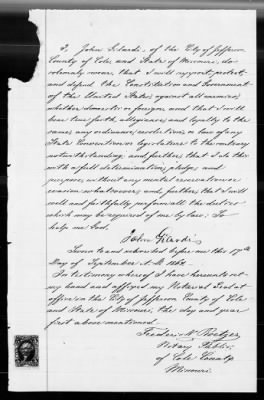 I John Gilardi, of the City of Jefferson
County of Cole and State of Missouri, do
solemnly swear that I will support, protect,
and defend the Constitution and Government
of the United States against all enemies,
whether domestic or foreign and that I will
bear true faith, allegiance and loyalty to the
same, any ordinance, resolution or law of any
State Convention or legislature to the contrary
notwithstanding, and further that I do this
with a full determination, pledge and
purpose, without any mental reservation or
evasion whatsoever, and further that I will
well and faithfully perform all the duties
which may be required of me by law: So
help me God.
John Gilardi
Sworn to and subscribed before me this 17th
day of September A.D. 186
In testimony whereof I have hereunto set
my hand and affixed my Notarial Seal at
office in the City of Jefferson County of Cole
and State of Missouri, the day and year
first above mentioned.
Frederic
Notary Public
of Cole County
Missouri.